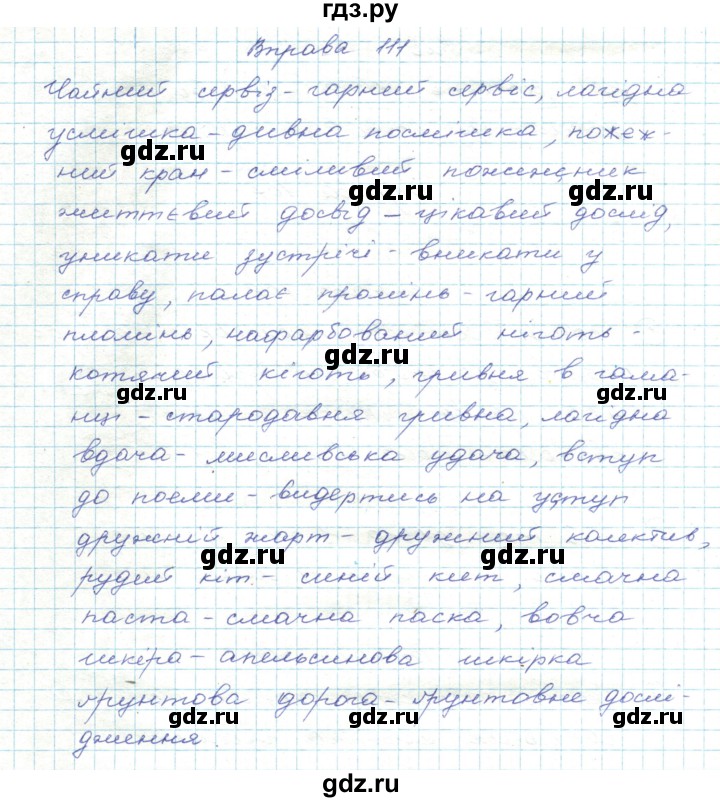 гдз.ру
Вправа 111
Чайний сервіз - гарний сервіс, лагідна
усмішка - дивна посмішка, пожеж-
ний кран - сміливий пожежник
gdz.ru
gdz.ru
життєвий досвід - цікавий дослід,
уникати зустрічі - вникати у
gdz.ru
gdz.ru
справу, палає промінь - гарний
пломінь, нафарбований ніготь -
gdz.ru
котячий кіготь, гривня в гама-
gdz.ru
gdz.ru
нці - стародавня гривна, лагідна
вдача - мисливська удача, вступ
gdz.ru
до поеми - видертись на уступ
дружній жарт - дружний колектив,
gdz.ru
gdz.ru
рудий кіт - синій кит, смачна
паста - смачна паска, вовча
gdz.ru
шкіра - апельсинова шкірка
ґрунтова дорога - ґрунтовне дослі-
gdz.ru
gdz.ru
gdz.ru
дження.
gdz.ru